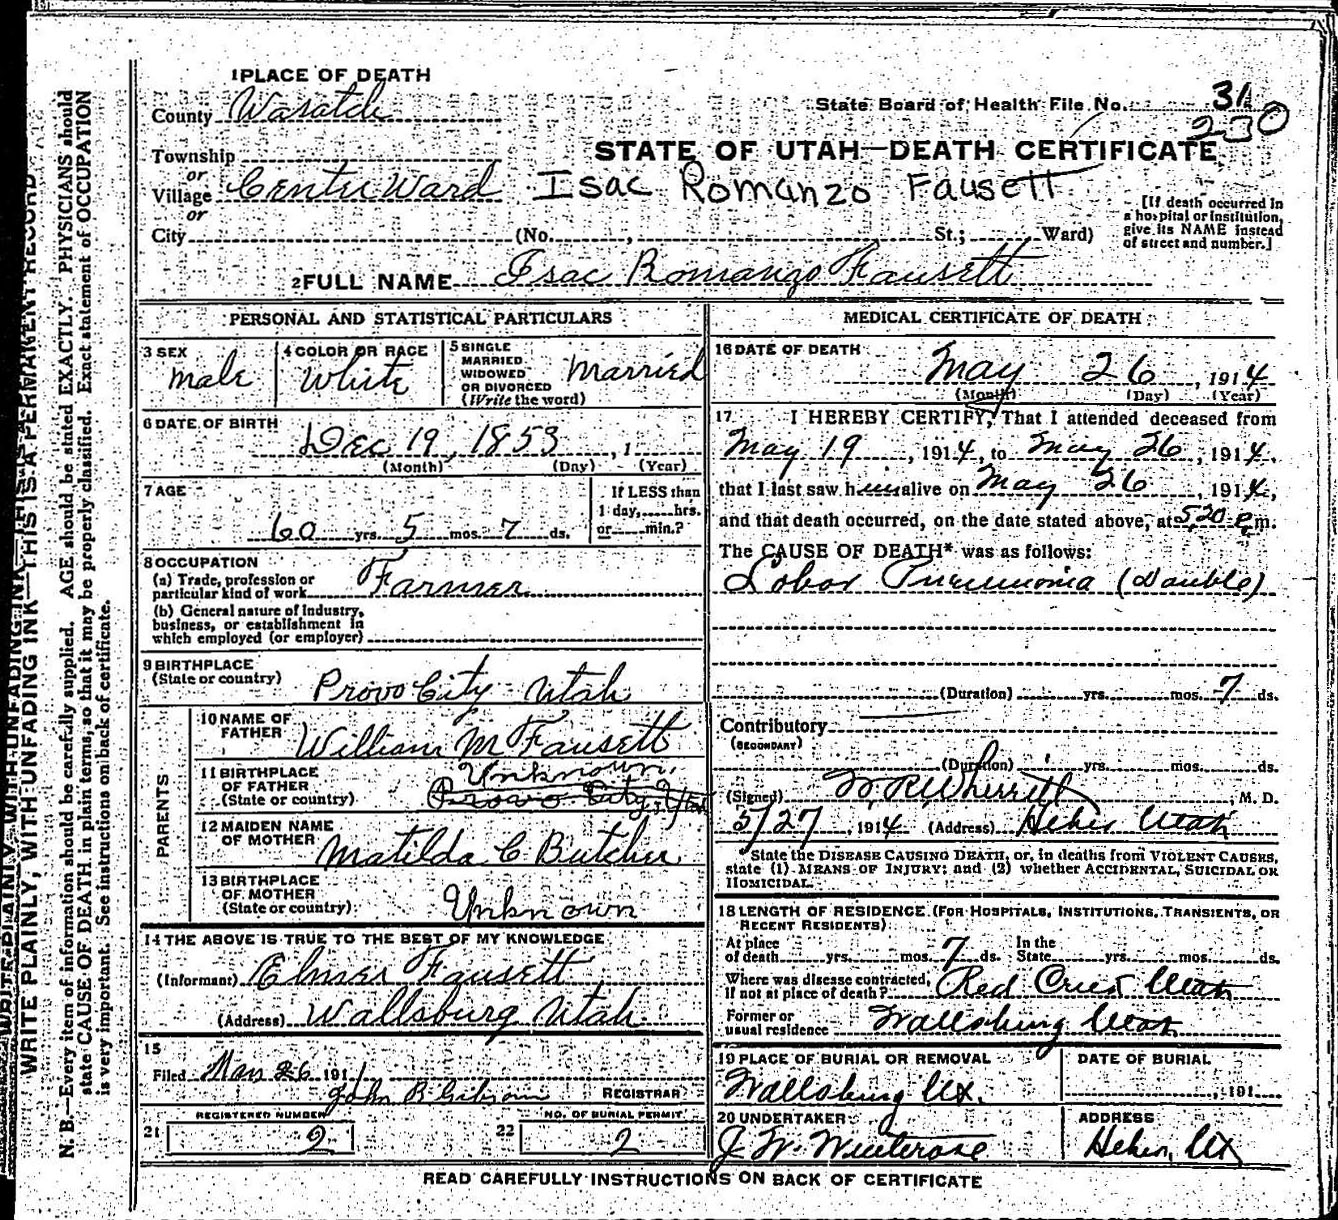 1 PLACE OF DEATH
County Wasatch
State Board of Health File No. 31
230
Township
or
Village Center Ward
or
City (No. , St.; Ward)
STATE OF UTAH—DEATH CERTIFICATE
Isac Romanzo Fausett
[If death occurred in
a hospital or institution,
give its NAME instead
of street and number.]
2 FULL NAME Isac Romanzo Fausett
PERSONAL AND STATISTICAL PARTICULARS
3 SEX
male
4 COLOR OR RACE
White
5 SINGLE
MARRIED
WIDOWED
OR DIVORCED
(Write the word)
Married
6 DATE OF BIRTH
Dec 19, 1853 , 1
(Month) (Day) (Year)
7 AGE
60 yrs. 5 mos. 7 ds.
If LESS than
1 day, hrs.
or min.?
8 OCCUPATION
(a) Trade, profession or
particular kind of work Farmer
(b) General nature of industry,
business, or establishment in
which employed (or employer)
9 BIRTHPLACE
(State or country)
Provo City Utah
PARENTS
10 NAME OF
FATHER
William M Fausett
11 BIRTHPLACE
OF FATHER
(State or country)
Unknown
Provo City, Utah
12 MAIDEN NAME
OF MOTHER
Matilda C Butcher
13 BIRTHPLACE
OF MOTHER
(State or country)
Unknown
14 THE ABOVE IS TRUE TO THE BEST OF MY KNOWLEDGE
(Informant) Elmer Fausett
(Address) Wallsburg Utah
15
Filed 26 191
John B Gibson REGISTRAR
REGISTERED NUMBER
21 2
NO. OF BURIAL PERMIT
22 2
MEDICAL CERTIFICATE OF DEATH
16 DATE OF DEATH
May 26, 1914
(Month) (Day) (Year)
17 I HEREBY CERTIFY, That I attended deceased from
May 19, 1914, to May 26, 1914,
that I last saw him alive on May 26, 1914,
and that death occurred, on the date stated above, at 5.20 P.m.
The CAUSE OF DEATH* was as follows:
Lobar Pneumonia (Double)
(Duration) yrs. mos. 7 ds.
Contributory
(SECONDARY)
(Duration) yrs. mos. ds.
(Signed) W. R. Wherritt, M. D.
5/27, 1914 (Address) Heber Utah
State the DISEASE CAUSING DEATH, or, in deaths from VIOLENT CAUSES,
state (1) MEANS OF INJURY; and (2) whether ACCIDENTAL, SUICIDAL OR
HOMICIDAL.
18 LENGTH OF RESIDENCE (FOR HOSPITALS, INSTITUTIONS, TRANSIENTS, OR
RECENT RESIDENTS)
At place
of death yrs. mos. 7 ds. In the
State yrs. mos. ds.
Where was disease contracted,
if not at place of death? Red Creek Utah
Former or
usual residence Wallsburg Utah
19 PLACE OF BURIAL OR REMOVAL
Wallsburg Ut.
DATE OF BURIAL
, 191
20 UNDERTAKER
J. W. Winterose
ADDRESS
Heber, Ut
READ CAREFULLY INSTRUCTIONS ON BACK OF CERTIFICATE
WRITE PLAINLY, WITH UNFADING INK—THIS IS A PERMANENT RECORD
N. B.—Every item of information should be carefully supplied. AGE should be stated EXACTLY. PHYSICIANS should
state CAUSE OF DEATH in plain terms, so that it may be properly classified. Exact statement of OCCUPATION
is very important. See instructions on back of certificate.